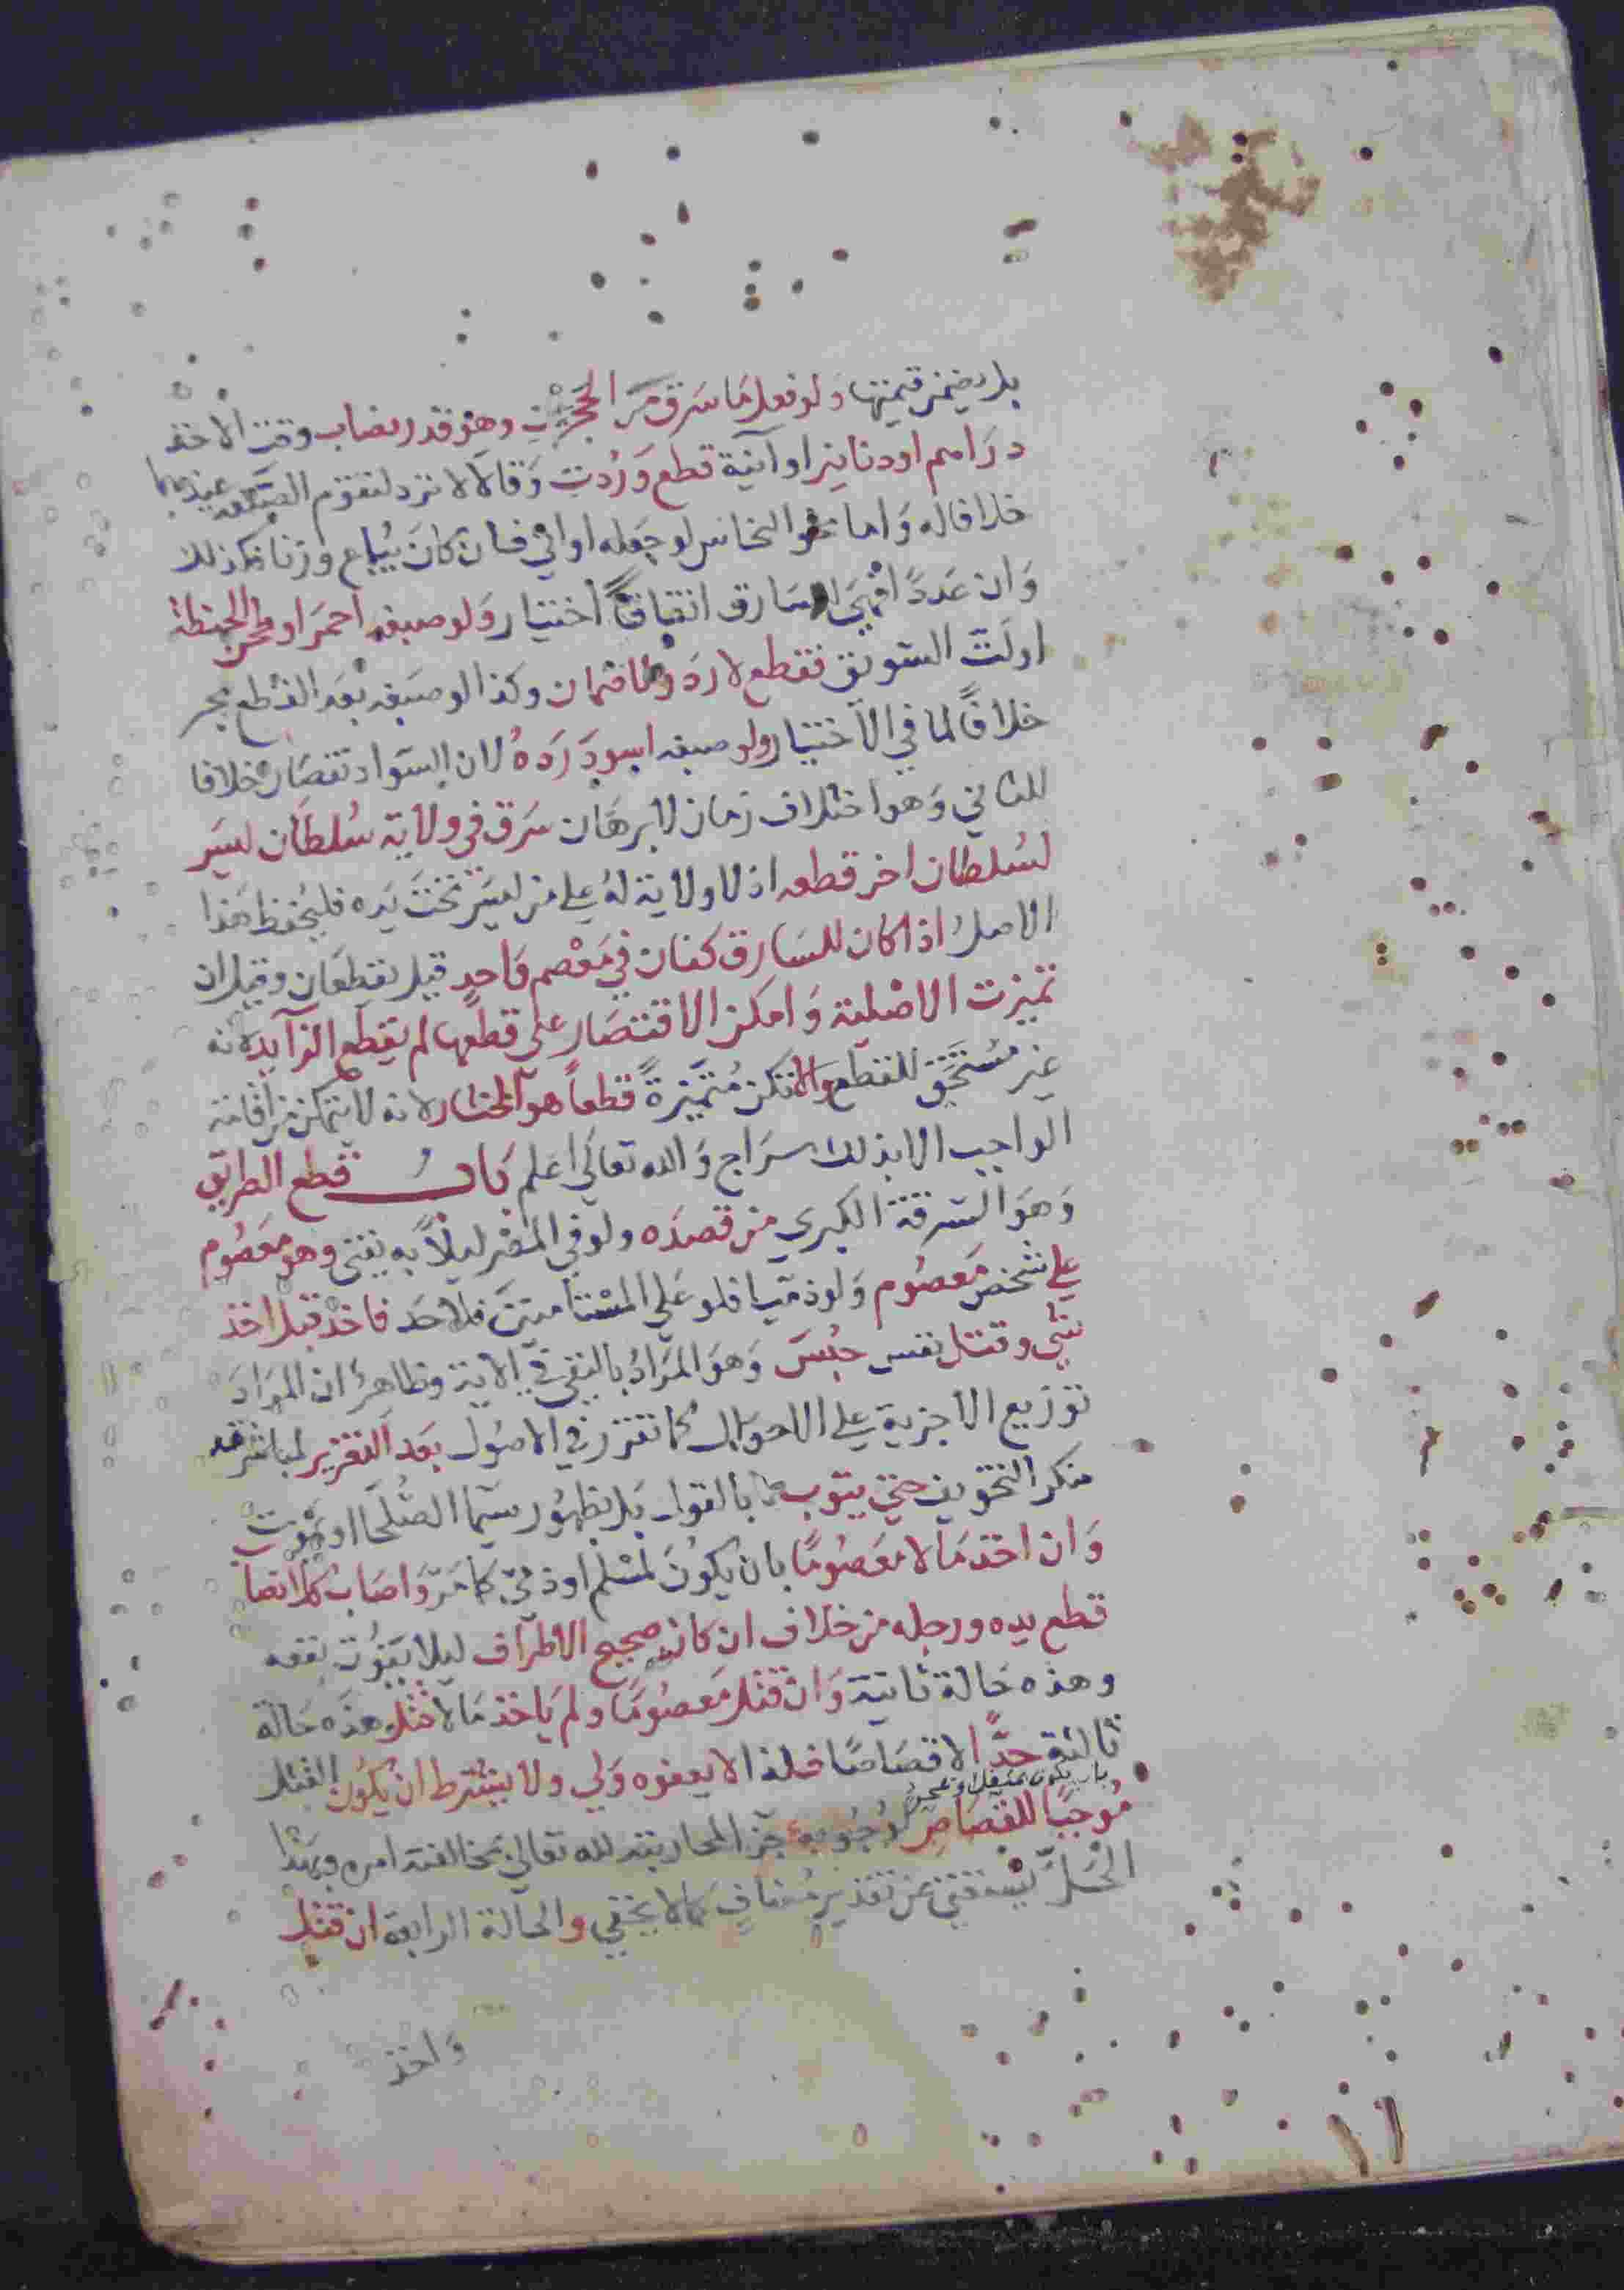 بل يضمن قيمتها ولو فعل ما سرق من الحجرين وهو قدر نصاب وقت الاخذ
دراهم او دنانير او آنية قطع وردت وقالا لا ترد لتقوم الصنعة عندهما
خلافا له واما نحو النحاس لو جعله اواني فان كان يباع وزنا فكذلك
وان عددا فهي للسارق اتفاقا اختيار ولو صبغه احمر او طحن الحنطة
اولت السويق فقطع لا رد ولا ضمان وكذا لو صبغه بعد القطع بحر
خلافا لما في الاختيار ولو صبغه اسود رده لان السواد نقصان خلافا
للثاني وهو اختلاف زمان لا برهان سرق في ولاية سلطان ليس
لسلطان اخر قطعه اذ لا ولاية له علي من ليس تحت يده فليحفظ هذا
الاصل اذا كان للسارق كفان في معصم واحد قيل يقطعان وقيل ان
تميزت الاصلية وامكن الاقتصار علي قطعها لم يقطع الزايد لانه
غير مستحق للقطع والا تكن متميزة قطعا هو المختار لانه لا يتمكن من اقامة
الواجب الا بذلك سراج والله تعالي اعلم باب قطع الطريق
وهو السرقة الكبري من قصده ولو في المصر ليلا به يفتي وهو معصوم
علي شخص معصوم ولو ذميا فلو علي المستامنين فلا حد فاخذ قبل اخذ
شي وقتل نفس حبس وهو المراد بالنفي في الاية وظاهره ان المراد
توزيع الاجزية علي الاحوال كما تقرر في الاصول بعد التعزير لمباشرته
منكر التخويف حتي يتوب لا بالقول بل بظهور سيما الصلحا او يموت
وان اخذ مالا معصوما بان يكون لمسلم او ذمي كما مر واصاب كلا نصاب
قطع يده ورجله من خلاف ان كان صحيح الاطراف ليلا يفوت نفعه
وهذه حالة ثانية وان قتل معصوما ولم ياخذ مالا قتل وهذه حالة
ثالثة حدا لا قصاصا فلذا لا يعفوه ولي ولا يشترط ان يكون القتل
موجبا للقصاص لوجوبه جزا لمحاربته لله تعالي بمخالفة امره وبهذا
الحل يستغني عن تقدير مضاف كما لا يخفي والحالة الرابعة ان قتل
واخذ
١١